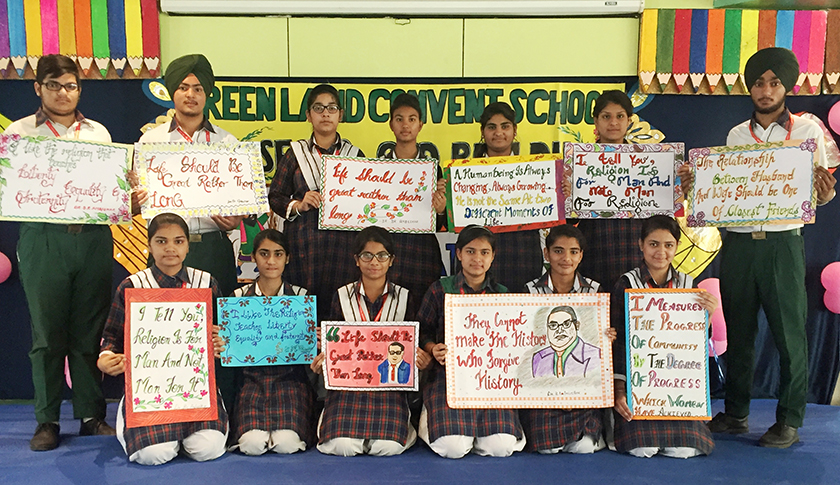 REEN LAND CONVENT SCHOO
I like the religion that
teaches
Liberty Equality &
Fraternity
Life Should Be
Great Rather Than
Long
Life Should be
great rather than
long
A Human Being Is Always
Changing, Always Growing
He is not the Same At two
Different Moments Of
Life.
I tell You,
Religion Is
For Man And
Not Man
For Religion
The Relationship
Between Husband
And Wife Should be One
Of Closest Friends
I Tell You
Religion Is For
Man And Not
Man For It
I Like The Religion
Teaches Liberty
Equality and fraternity
Life Should Be
Great Rather
Than Long
They Cannot
make The History
Who Forgive
History
I Measures
The Progress
Of Community
By The Degree
Of Progress
Which Women
Have Achieved